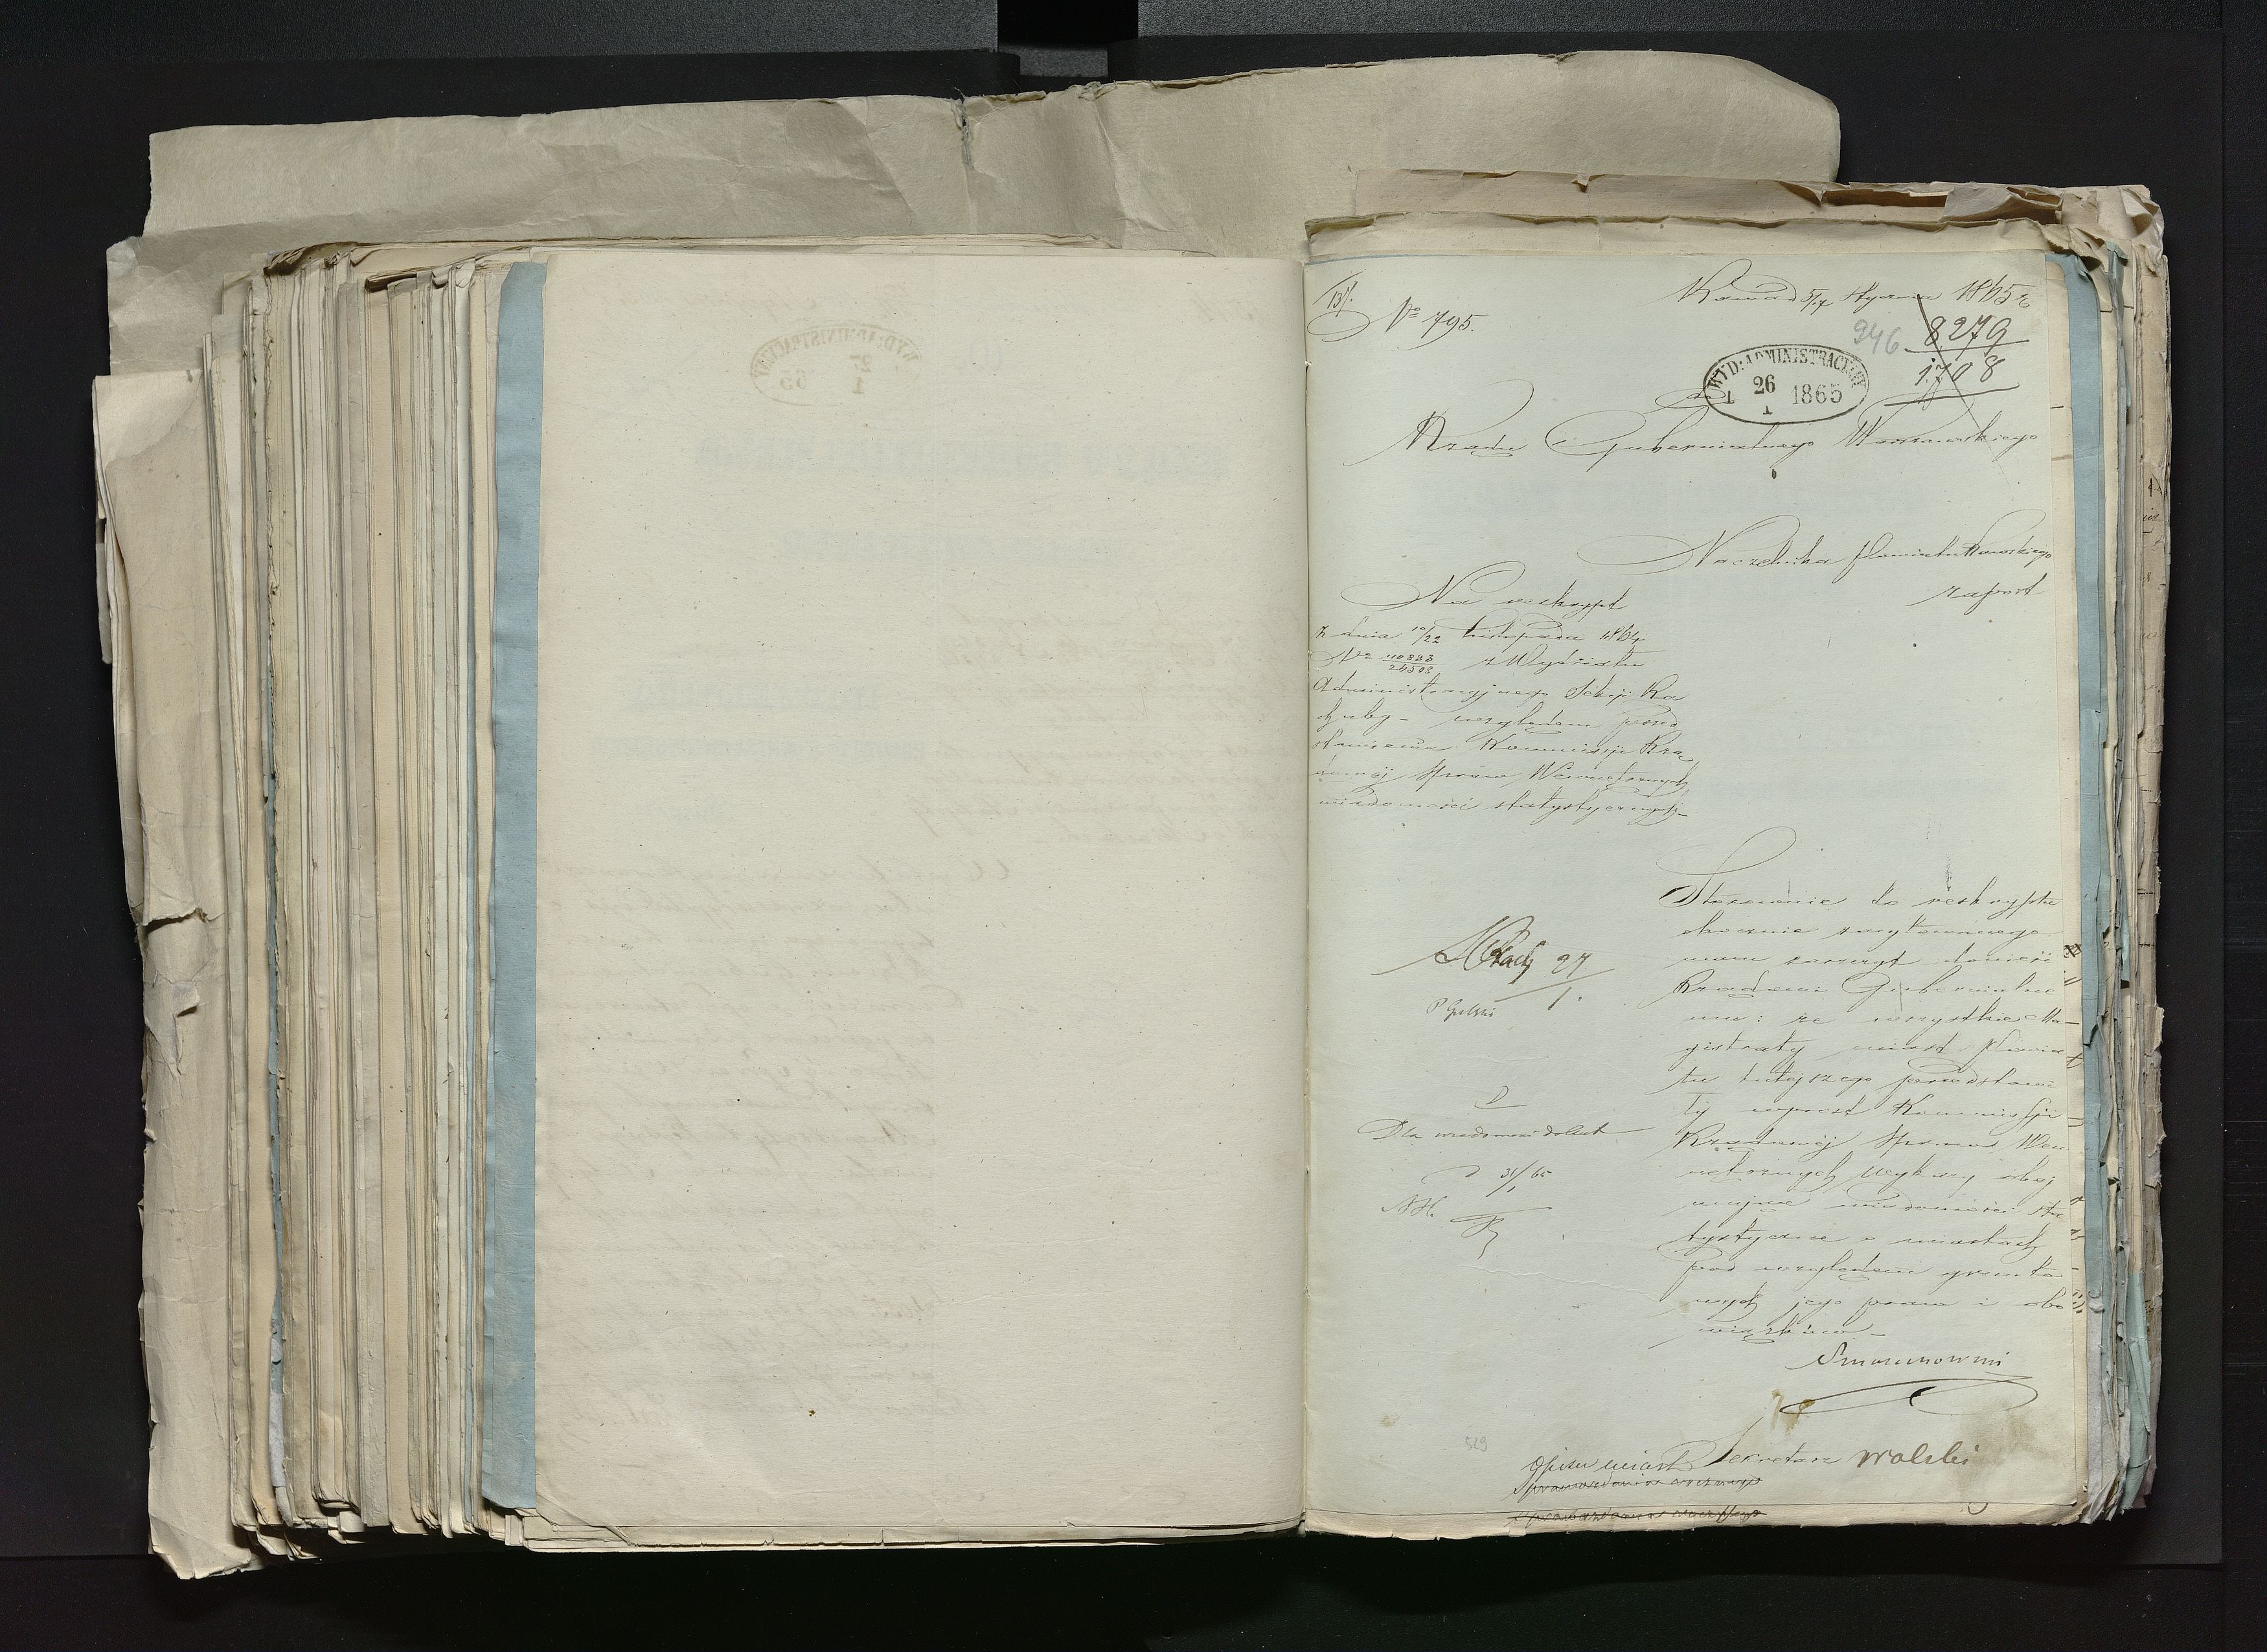 137.
No 795.
Rawa d 5/17 Stycznia 1865 r
946
8279
1708
WYD: ADMINISTRACYJNY
1 26/1 1865
do
Rządu Gubernialnego Warszawskiego
Naczelnika Powiatu Rawskiego
raport
Na reskrypt
z dnia 10/22 Listopada 1864
No 110223/24508 z Wydziału
Administracyjnego Sekcji Ra
chuby - względem przed
stawienia Kommissyi Rzą
dowej Spraw Wewnętrznych
wiadomości statystycznych -
Stosownie do reskryptu
obocznie zacytowanego
mam zaszczyt donieść
Rządowi Gubernialne
mu: że wszystkie Ma-
gistraty miast Powia
tu tutejszego przedstawi
ły wprost Kommissyi
Rządowej Spraw Wew
nętrznych Wykazy obej
mujące wiadomości sta
tystyczne o miastach
pod względem grunto
wych jego praw i obo
wiązków -
27/1.
P Gulski
D
Dla wiadomości do akt
31/1 65
Sekretarz Wolski
Opisu miast
Sprawozdania rocznego
529